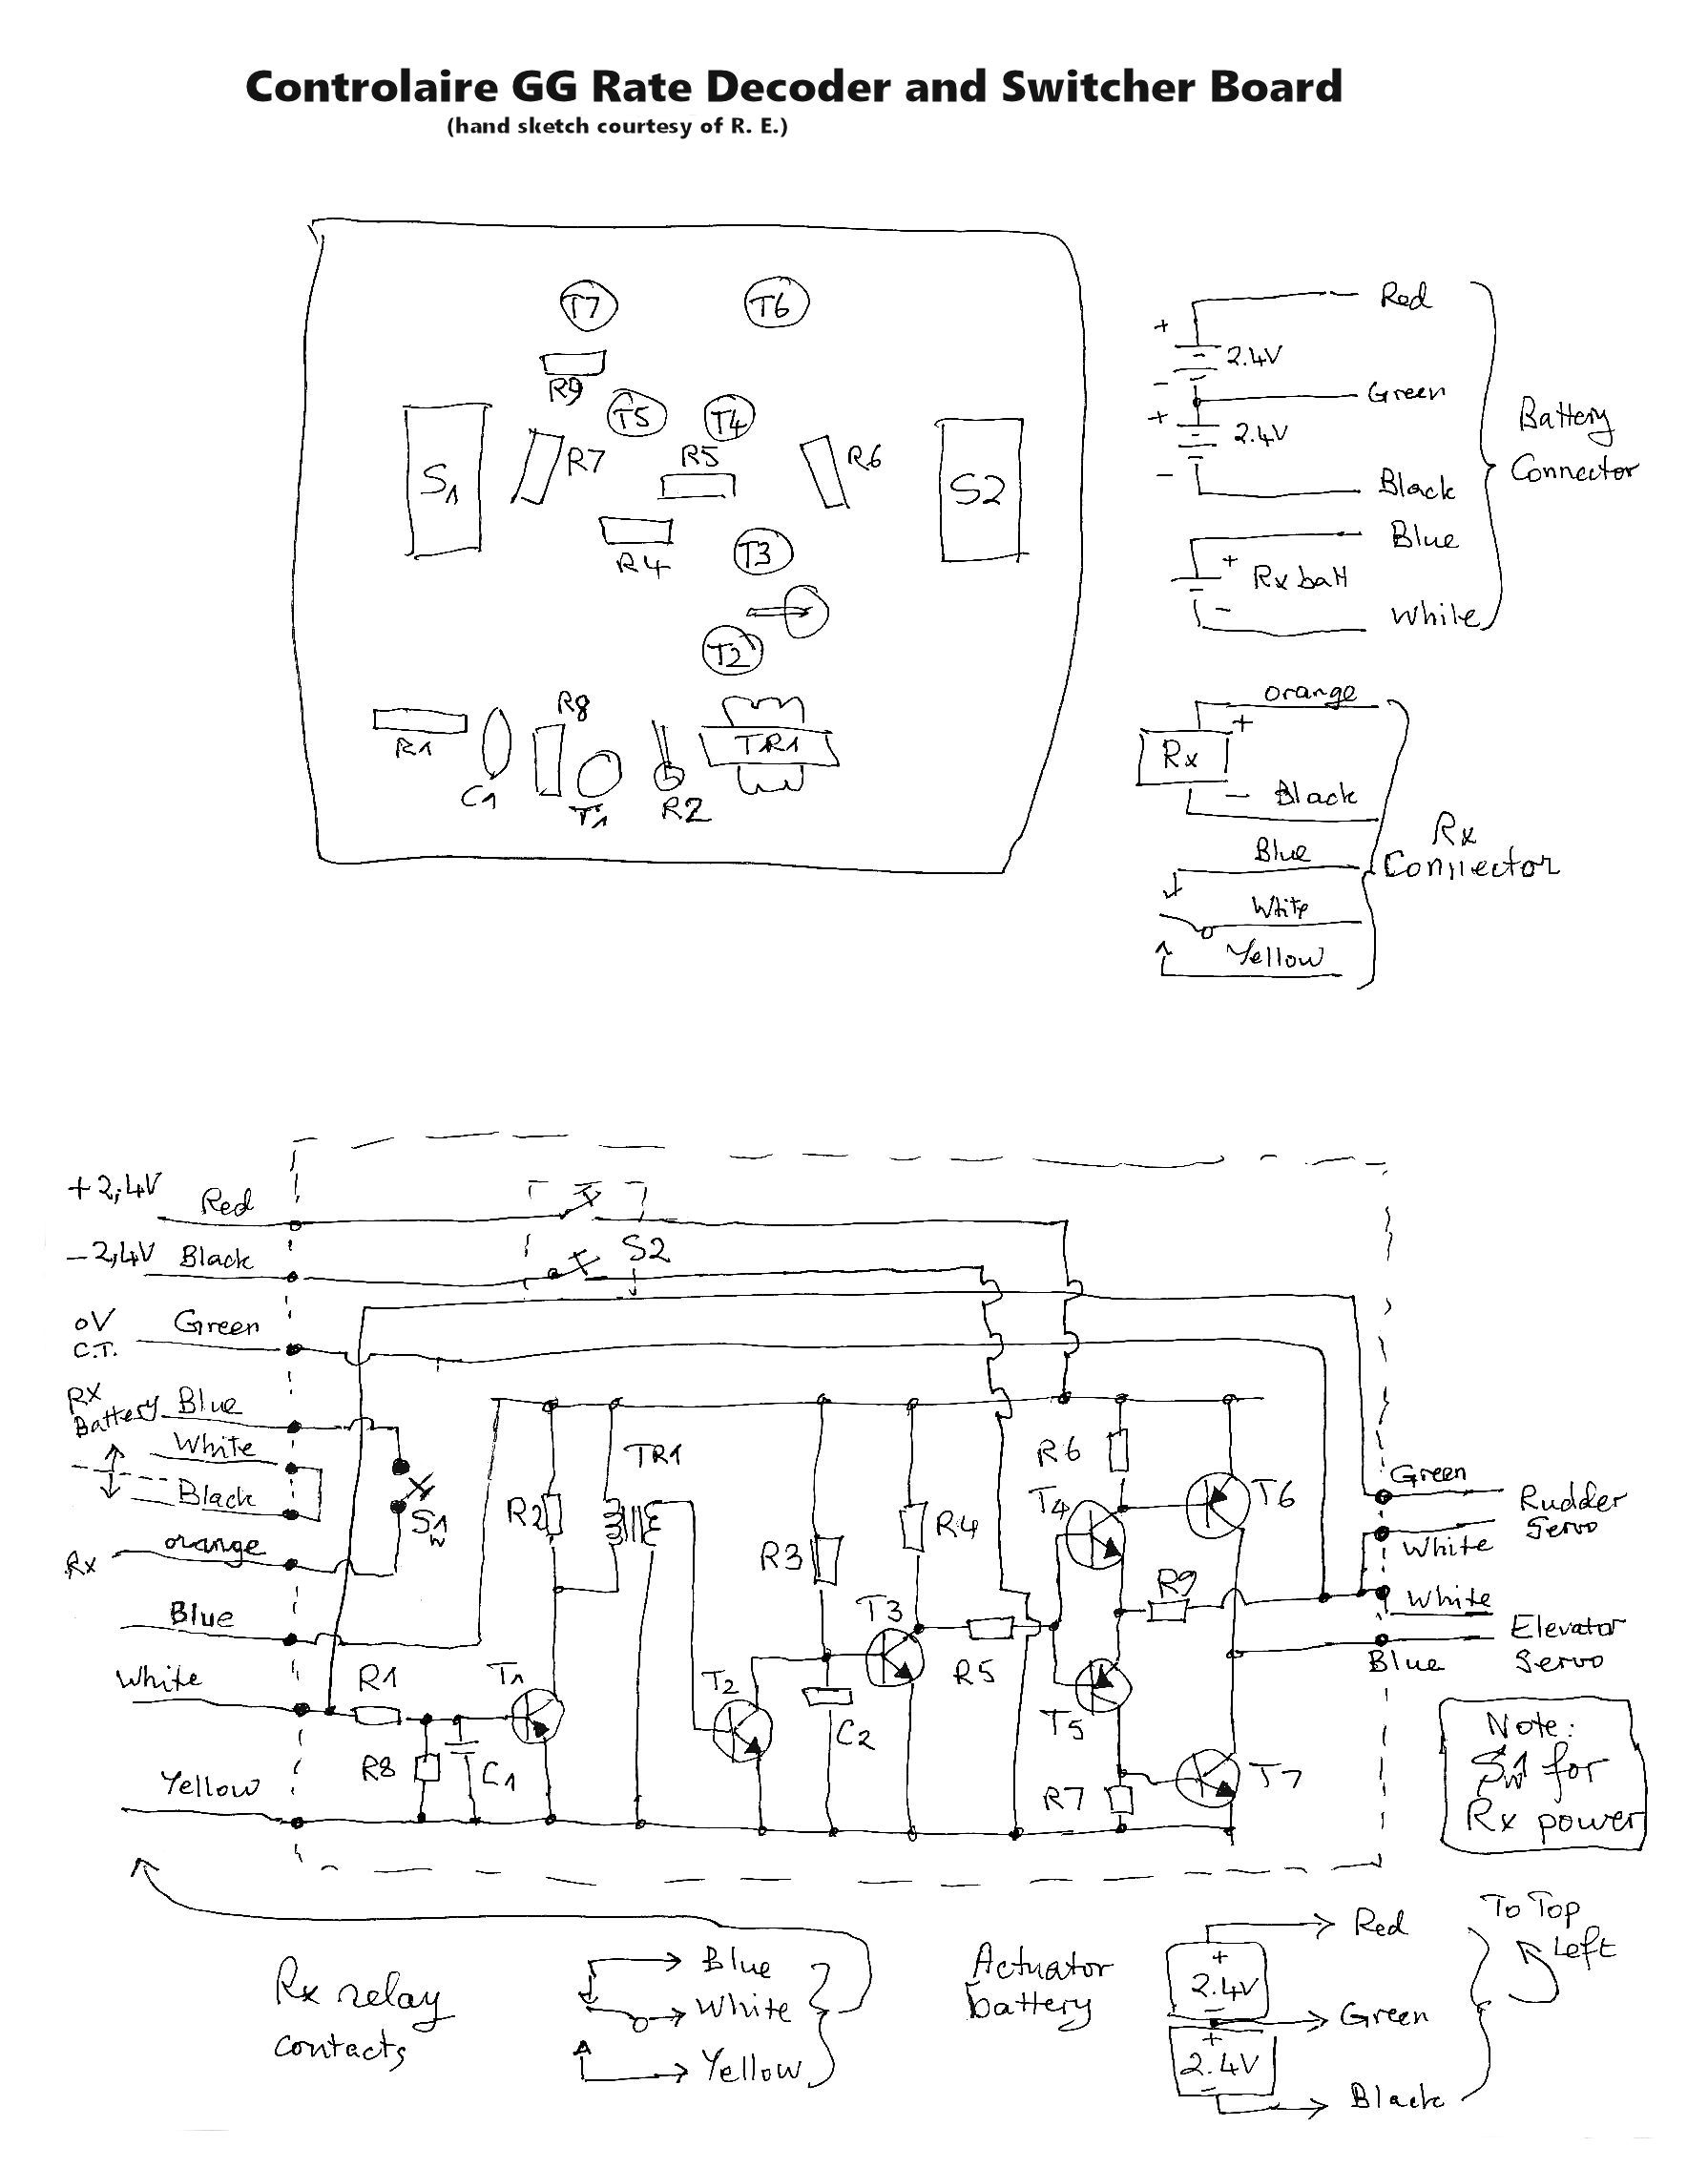 Controlaire GG Rate Decoder and Switcher Board
(hand sketch courtesy of R. E.)
T7
T6
R9
T5
T4
S1
R7
R5
R6
S2
R4
T3
T2
R1
C1
R8
T1
R2
TR1
+
Red
2.4V
-
Green
+
2.4V
-
Black
Battery
Connector
Blue
+
Rx batt
-
White
orange
+
Rx
- Black
Blue
White
Yellow
Rx
Connector
+2,4V Red
-2,4V Black
S2
0V Green
C.T.
RX
Battery Blue
White
Black
S1w
Rx orange
Blue
White
Yellow
R1
R8
C1
T1
R2
TR1
T2
R3
C2
T3
R4
R5
R6
T4
T5
R7
R9
T6
T7
Green
Rudder
Servo
White
White
Elevator
Servo
Blue
Note:
S1w for
Rx power
Rx relay
contacts
Blue
White
Yellow
Actuator
battery
+
2.4V
-
+
2.4V
-
Red
Green
Black
To Top
Left